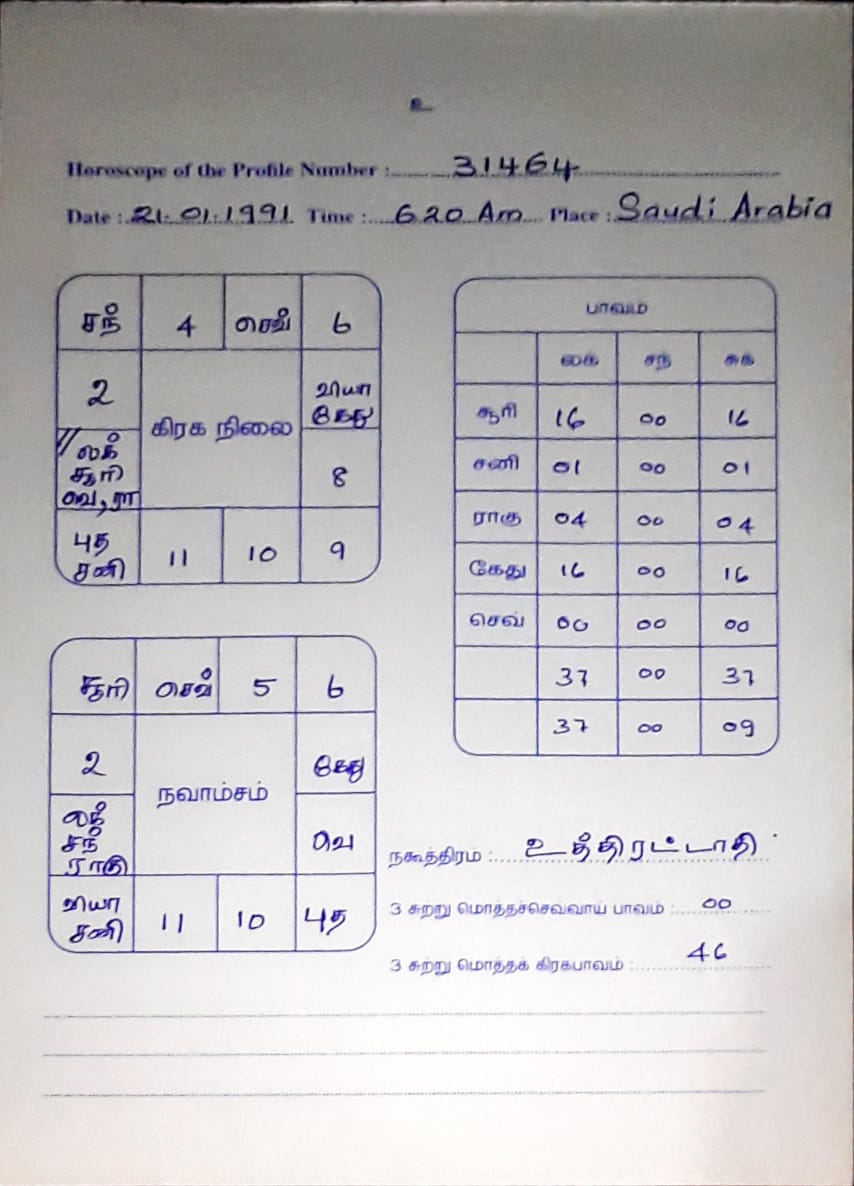 உ
Horoscope of the Profile Number : 31464
Date : 21.01.1991 Time : 6 20 Am Place : Saudi Arabia
சந் 4 செவ் 6
2 வியா கேது
கிரக நிலை
லக் சூரி வெ, ரா 8
புத சனி 11 10 9
பாவம்
லக் சந் சுக்
சூரி 16 00 16
சனி 01 00 01
ராகு 04 00 04
கேது 16 00 16
செவ் 00 00 00
37 00 37
37 00 09
சூரி செவ் 5 6
2 கேது
நவாம்சம்
லக் சந் ராகு வெ
வியா சனி 11 10 புத
நகூத்திரம் : உத்திரட்டாதி
3 சுற்று மொத்தச்செவ்வாய் பாவம் : 00
3 சுற்று மொத்தக் கிரகபாவம் : 46